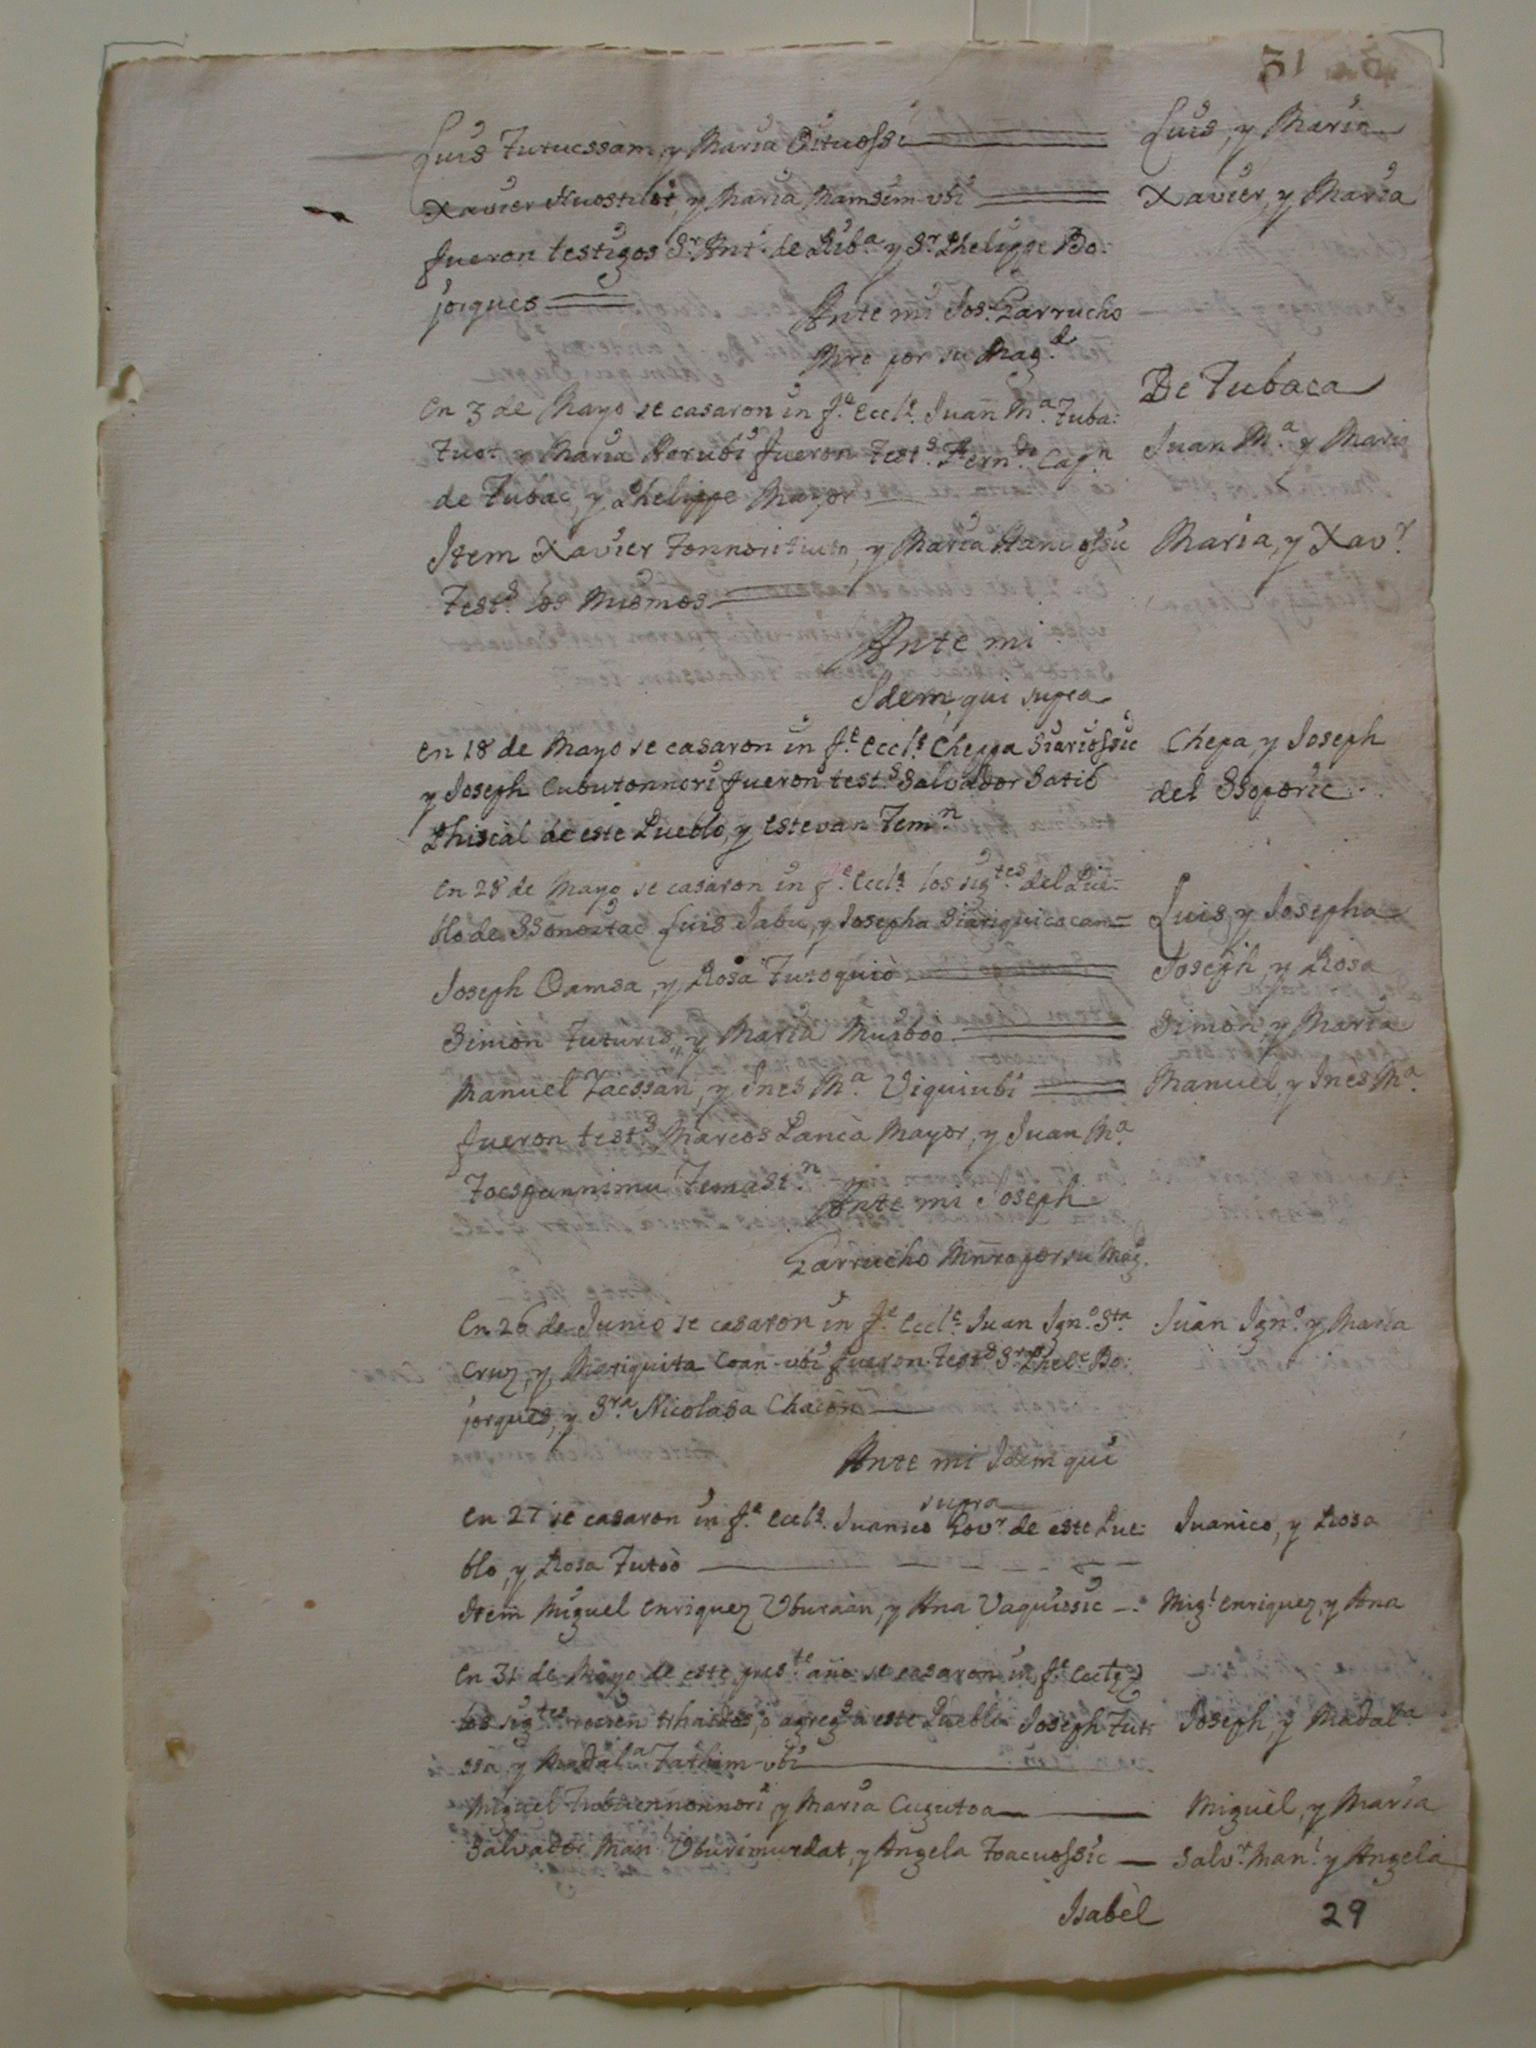 51
Luis Tutucssam, y Maria Oituossi Luis, y Maria
Xavier Huostilot, y Maria Mamsim-ubi Xavier, y Maria
fueron testigos Sr. Anto. de Riba. y Sr. Phelippe Bo:
jorques
Ante mi Jos. Garrucho
Mro por su Mag.d
De Tubaca
En 3 de Mayo se casaron in f.e Eccl.e Juan M.a Tuba:
tuot y Maria Norubi fueron Test.s Fern.do Cap.n Juan M.a y Maria
de Tubac, y Phelippe Mayor
Item Xavier Tonnorituto, y Maria Hanuossu Maria, y Xav.r
Test.s los mismos
Ante mi
Idem, qui supra
En 18 de Mayo se casaron in f.e Eccl.e Cheppa Siariossic Chepa y Joseph
y Joseph Cubutonnori fueron test.s Salvador Satio del Ssoporic
Phiscal de este Pueblo, y Estevan Tem.n
En 28 de Mayo se casaron in f.e Eccl.e los sig.tes del Pue-
blo de Ssonoitac Luis Jabu, y Josepha Siariquicocam= Luis, y Josepha
Joseph Oamsa, y Rosa Tutoquiò Joseph, y Rosa
Simòn Tuturis, y Maria Muiboo Simòn, y Maria
Manuel Tacssan, y Ines M.a Viquiubi Manuel, y Ines M.a
fueron test.s Marcos Pancà Mayor, y Juan M.a
Tocspannimu Temast.n
Ante mi Joseph
Garrucho Mñro por su Mag.
En 26 de Junio se casaron in f.e Eccl.e Juan Ign.o Sta Juan Ign.o y Maria
Cruz, y Mariquita Coan-ubi fueron Test.s Sr. Phel.e Bo:
jorques, y Sra Nicolasa Chacòn
Ante mi Idem qui
supra
En 27 se casaron in f.e Eccl.e Juanico Gov.r de este Pue- Juanico, y Rosa
blo, y Rosa Tutoò
Item Miguel Enriquez Uburaàn, y Ana Vaquiossic Mig.l Enriquez, y Ana
En 31 de Mayo de este pres.te año se casaron in f.e Eccl.e
los sig.tes recien trhaidos, ò agreg.s à este Pueblo Joseph Tuti Joseph, y Madal.a
ssa, y Madal.a Tathim-ubi
Miguel Tubuennonnori, y Maria Cuzutoa Miguèl, y Maria
Salvador Man.l Uburimurdat, y Angela Toacuossic Salv.r Man.l y Angela
Isabèl
29